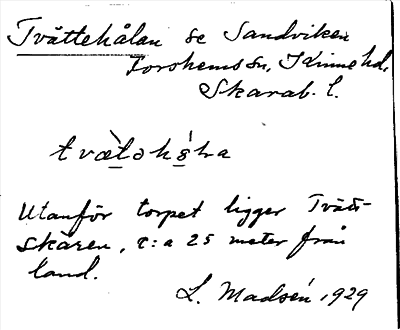 Tvättehålan se Sandviken
Forshems sn, Kinne hd,
Skarab. l.
Utanför torpet ligger Tvätt-
skären, c:a 25 meter från
land.
L. Madsén, 1929